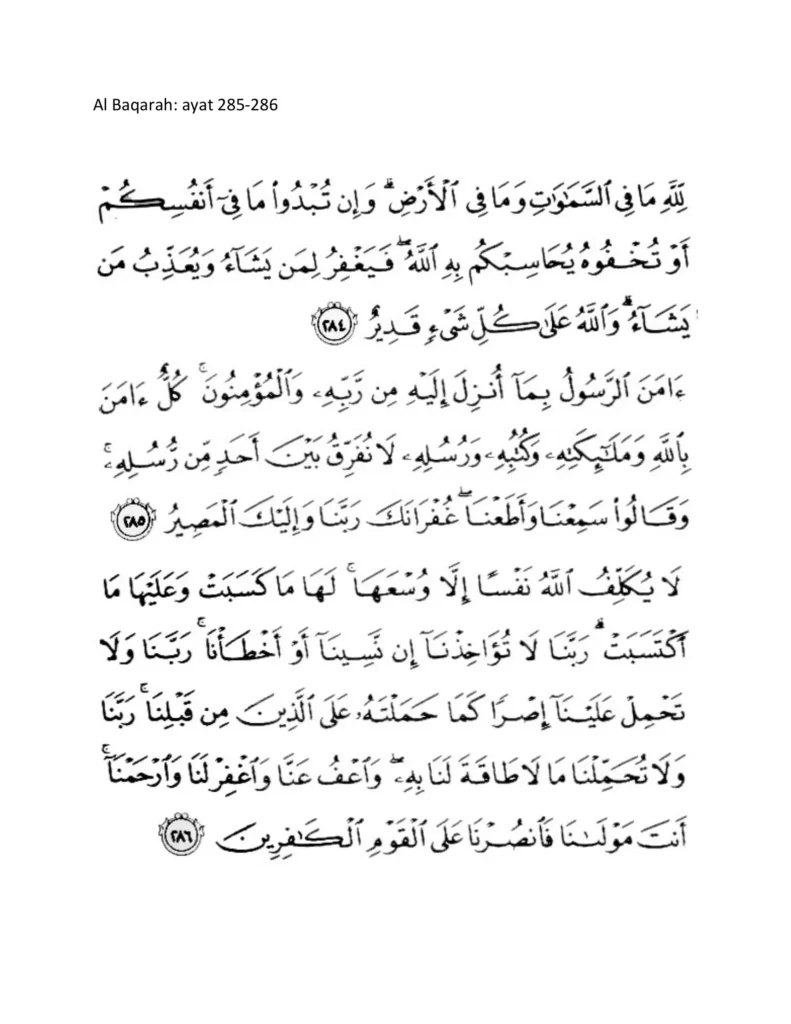 Al Baqarah: ayat 285-286
لِلَّهِ مَا فِى ٱلسَّمَٰوَٰتِ وَمَا فِى ٱلْأَرْضِ ۗ وَإِن تُبْدُوا۟ مَا فِىٓ أَنفُسِكُمْ
أَوْ تُخْفُوهُ يُحَاسِبْكُم بِهِ ٱللَّهُ ۖ فَيَغْفِرُ لِمَن يَشَآءُ وَيُعَذِّبُ مَن
يَشَآءُ ۗ وَٱللَّهُ عَلَىٰ كُلِّ شَىْءٍ قَدِيرٌ ٢٨٤
ءَامَنَ ٱلرَّسُولُ بِمَآ أُنزِلَ إِلَيْهِ مِن رَّبِّهِۦ وَٱلْمُؤْمِنُونَ ۚ كُلٌّ ءَامَنَ
بِٱللَّهِ وَمَلَٰٓئِكَتِهِۦ وَكُتُبِهِۦ وَرُسُلِهِۦ لَا نُفَرِّقُ بَيْنَ أَحَدٍ مِّن رُّسُلِهِۦ ۚ
وَقَالُوا۟ سَمِعْنَا وَأَطَعْنَا ۖ غُفْرَانَكَ رَبَّنَا وَإِلَيْكَ ٱلْمَصِيرُ ٢٨٥
لَا يُكَلِّفُ ٱللَّهُ نَفْسًا إِلَّا وُسْعَهَا ۚ لَهَا مَا كَسَبَتْ وَعَلَيْهَا مَا
ٱكْتَسَبَتْ ۗ رَبَّنَا لَا تُؤَاخِذْنَآ إِن نَّسِينَآ أَوْ أَخْطَأْنَا ۚ رَبَّنَا وَلَا
تَحْمِلْ عَلَيْنَآ إِصْرًا كَمَا حَمَلْتَهُۥ عَلَى ٱلَّذِينَ مِن قَبْلِنَا ۚ رَبَّنَا
وَلَا تُحَمِّلْنَا مَا لَا طَاقَةَ لَنَا بِهِۦ ۖ وَٱعْفُ عَنَّا وَٱغْفِرْ لَنَا وَٱرْحَمْنَآ ۚ
أَنتَ مَوْلَىٰنَا فَٱنصُرْنَا عَلَى ٱلْقَوْمِ ٱلْكَٰفِرِينَ ٢٨٦